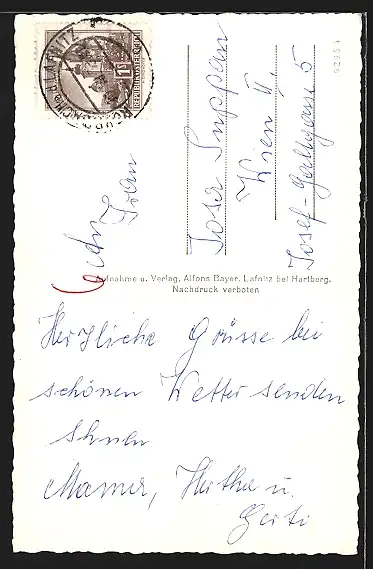 1 S
REPUBLIK ÖSTERREICH
92954
Frau
Josa Suppan
Wien II.
Josef-Gallgasse 5
Aufnahme u. Verlag, Alfons Bayer, Lafnitz bei Hartberg.
Nachdruck verboten
Herzliche Grüsse bei
schönen Wetter senden
Ihnen
Mamer, Hertha u.
Gerti